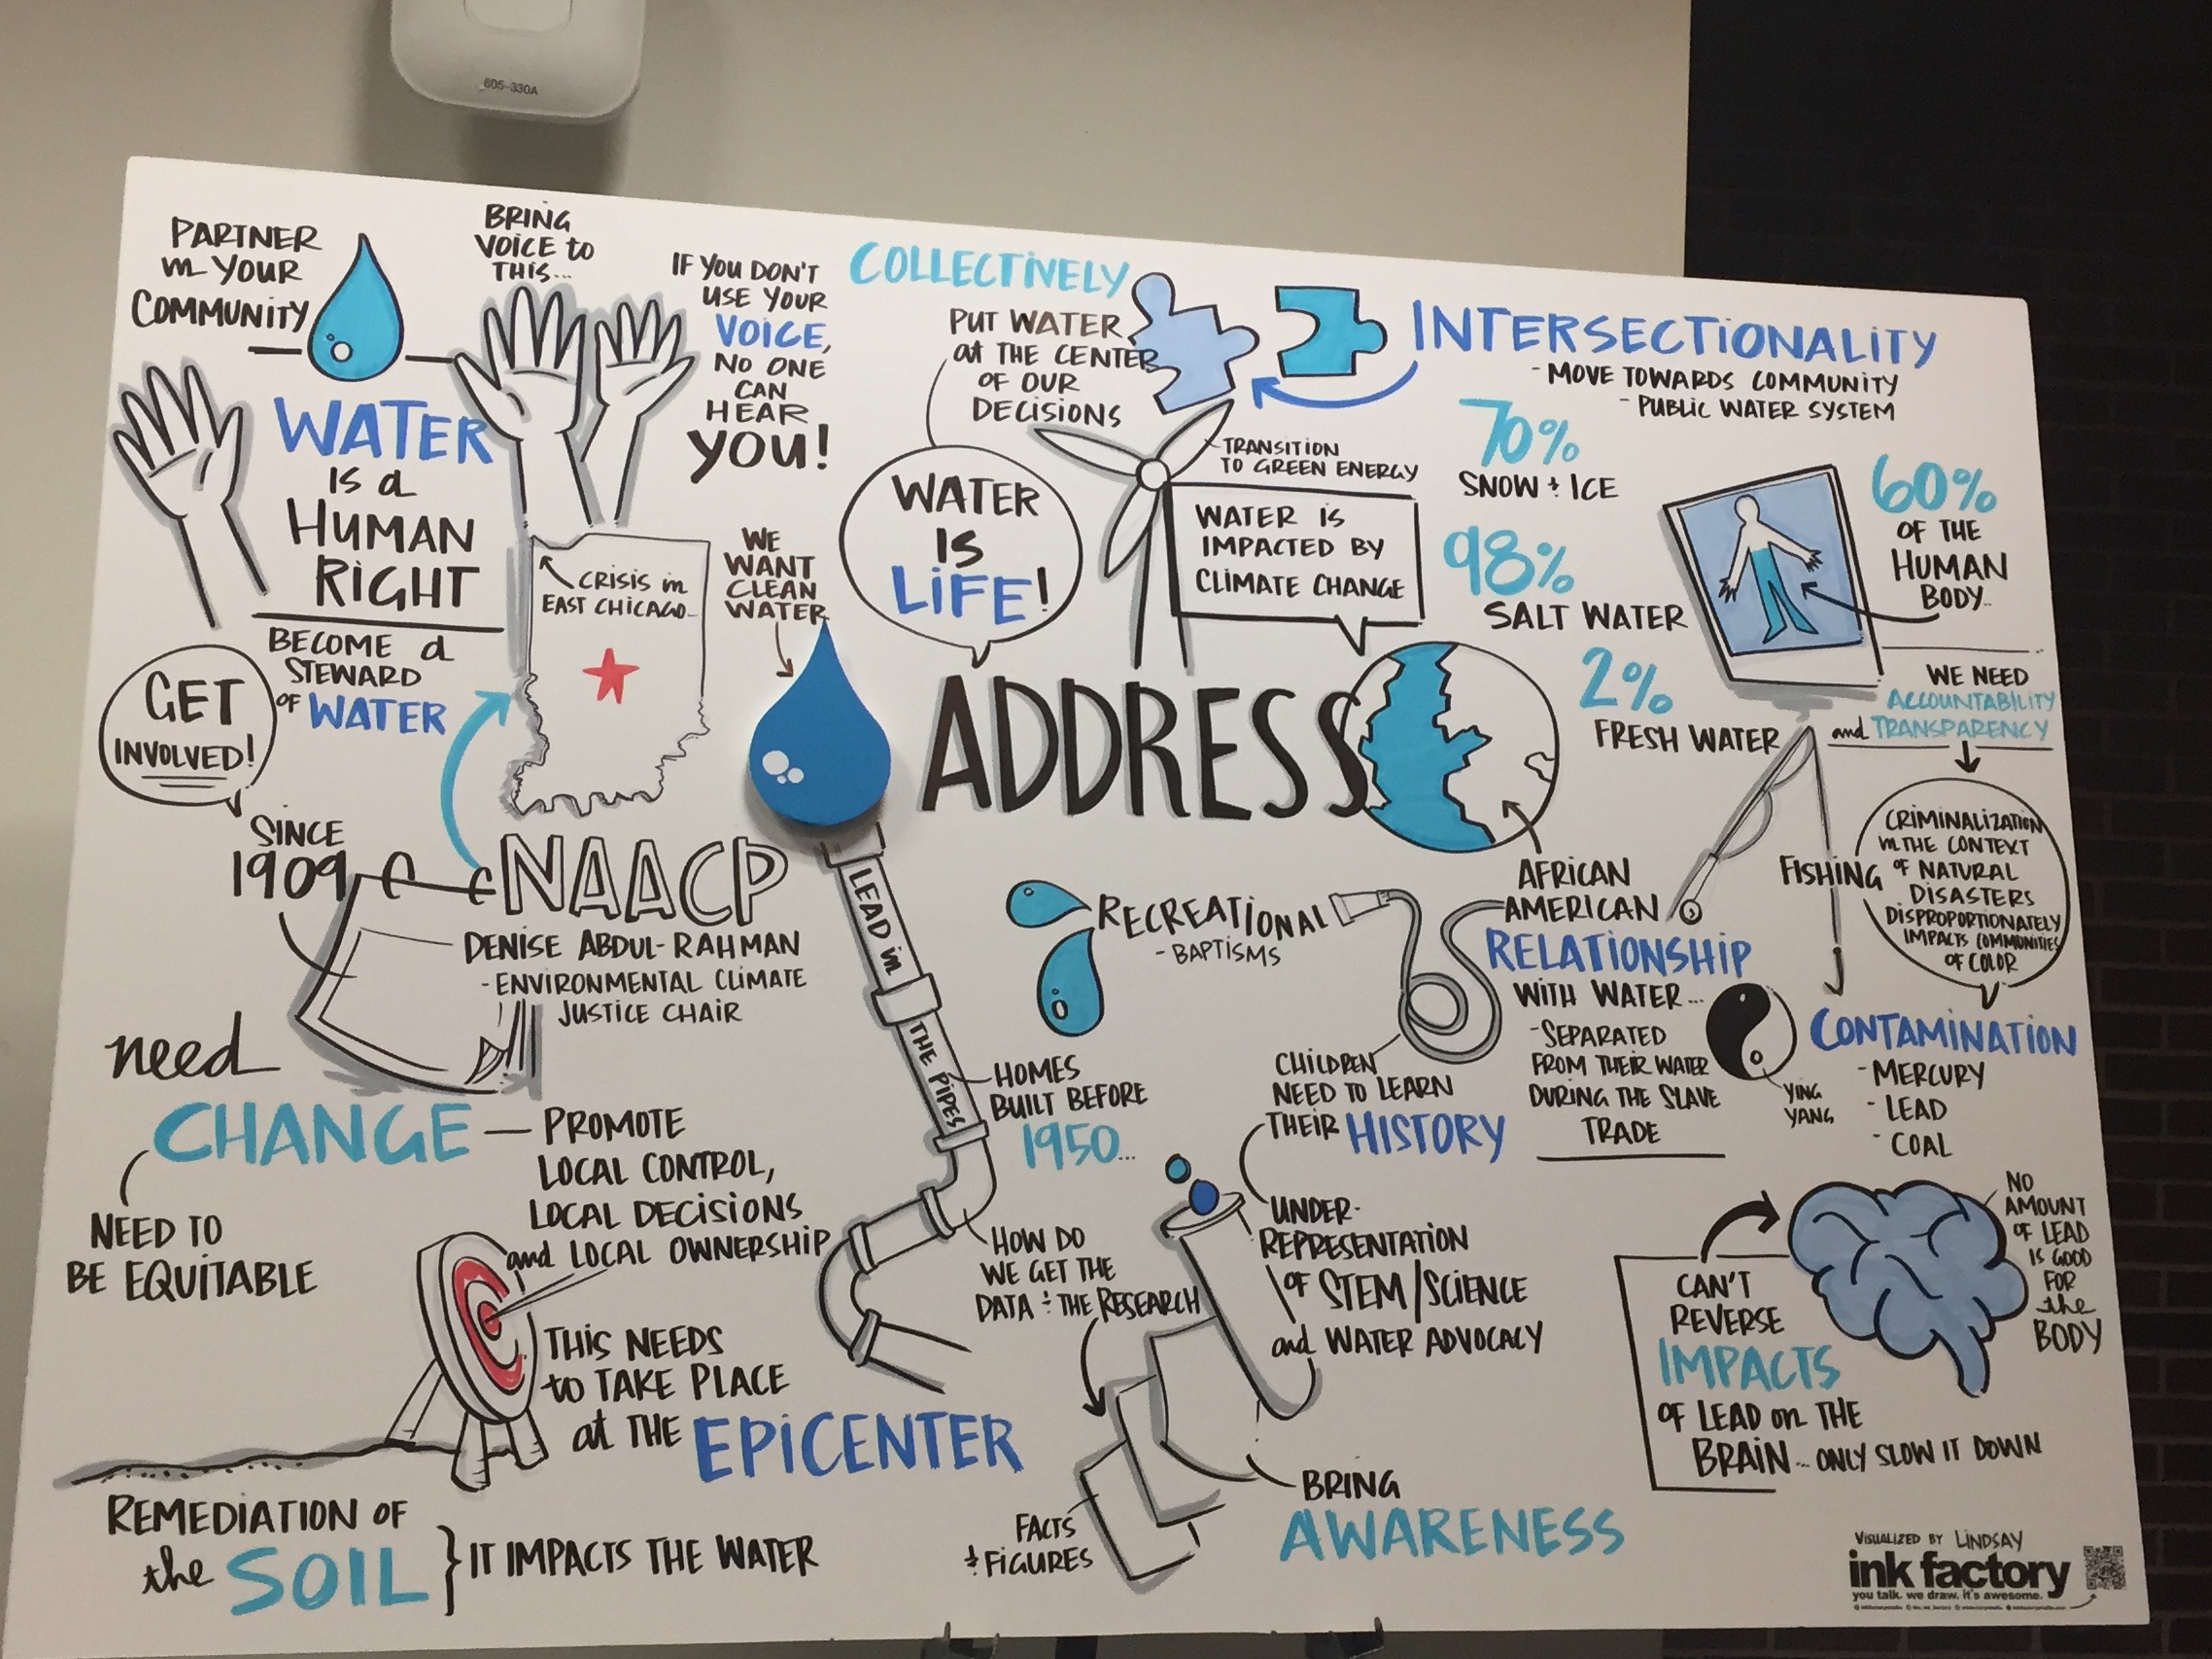 605-330A
PARTNER
in YOUR
COMMUNITY
WATER
IS a
HUMAN
RIGHT
BECOME a
STEWARD
OF WATER
GET
INVOLVED!
BRING
VOICE to
THIS...
IF YOU DON'T
USE YOUR
VOICE,
NO ONE
CAN
HEAR
YOU!
CRISIS in
EAST CHICAGO...
WE
WANT
CLEAN
WATER
COLLECTIVELY
PUT WATER
at THE CENTER
OF OUR
DECISIONS
WATER
IS
LIFE!
INTERSECTIONALITY
- MOVE TOWARDS COMMUNITY
- PUBLIC WATER SYSTEM
TRANSITION
TO GREEN ENERGY
WATER IS
IMPACTED BY
CLIMATE CHANGE
70%
SNOW + ICE
98%
SALT WATER
2%
FRESH WATER
60%
OF THE
HUMAN
BODY...
WE NEED
ACCOUNTABILITY
and TRANSPARENCY
CRIMINALIZATION
in THE CONTEXT
OF NATURAL
DISASTERS
DISPROPORTIONATELY
IMPACTS COMMUNITIES
OF COLOR
ADDRESS
SINCE
1909
NAACP
DENISE ABDUL-RAHMAN
- ENVIRONMENTAL CLIMATE
JUSTICE CHAIR
LEAD in
THE PIPES
HOMES
BUILT BEFORE
1950...
HOW DO
WE GET THE
DATA + THE RESEARCH
RECREATIONAL
- BAPTISMS
AFRICAN
AMERICAN
RELATIONSHIP
WITH WATER...
- SEPARATED
FROM THEIR WATER
DURING THE SLAVE
TRADE
FISHING
YING
YANG
CONTAMINATION
- MERCURY
- LEAD
- COAL
CHILDREN
NEED TO LEARN
THEIR HISTORY
UNDER-
REPRESENTATION
OF STEM/SCIENCE
and WATER ADVOCACY
need
CHANGE — PROMOTE
LOCAL CONTROL,
LOCAL DECISIONS
and LOCAL OWNERSHIP
NEED TO
BE EQUITABLE
THIS NEEDS
to TAKE PLACE
at THE EPICENTER
REMEDIATION OF
the SOIL } IT IMPACTS THE WATER
FACTS
+ FIGURES
BRING
AWARENESS
CAN'T
REVERSE
IMPACTS
OF LEAD on THE
BRAIN... ONLY SLOW IT DOWN
NO
AMOUNT
OF LEAD
IS GOOD
FOR
the
BODY
VISUALIZED BY LINDSAY
ink factory
you talk. we draw. it's awesome.